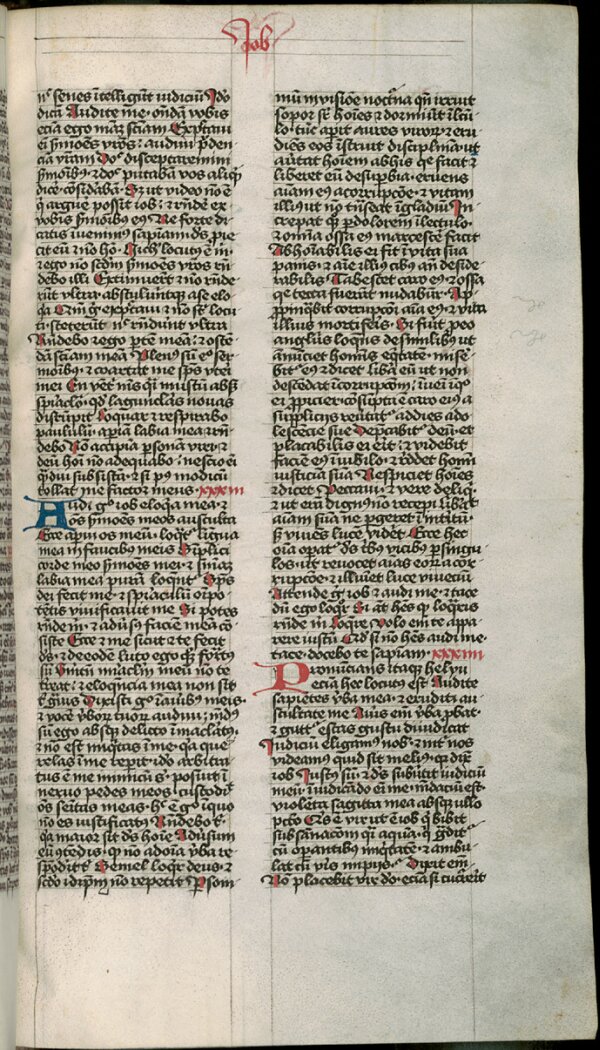 Job
nͨ senes ītelligūt iudiciū Ido
dicā Audite me · ondā vobis
eciā ego meā sciam Expectaui
ei s̄mones vros̄ : audiui pͥden-
ciā vram̄ Donͨ disceptaremini
s̄moībus ꝫ donͨ putabam vos aliqͥd
dicē · cōsiderabā · Sꝫ ut video nō ē
qͥ arguē possit iob : ꞇ rn̄dē ex
vobis s̄moībus eꝰ Ne forte di-
catis īuenimꝰ sapiam̄ : ds̄ pie-
cit eū ꞇ nō hō · Nichil locutꝰ ē mͥ ·
ꞇ ego nō scdm̄ s̄mones vros̄ rn̄-
debo illi Extimuert̄ ꞇ nō rn̄de-
rūt vltra · abstulūtqꝫ a se eloq̄a
Qm̄ gͦ expectaui ꞇ nō st̄ locu-
ti : steterūt nͨ rn̄dunt vltra
Rn̄debo ꞇ ego ptē meā : ꞇ oste-
dā sciam meā Plenꝰ sū eī ser-
moībꝰ : ꞇ coartat me sps̄ vteri
mei En vent̄ mꝰ qͣsi mustū absqꝫ
spiaclo · qd̄ lagunclas nouas
disrūpit Loquar ꞇ respirabo
paululū · apiā labia mea ꞇ rn̄-
debo Nō accipiā psonā viri · ꞇ
deū hoī nō adequabo : nescio eī
qͣdiu subsistā · ꞇ si pꝰ modicū
tollat me factor meus · xxxiii
Audi gͦ iob eloqa mea · ꞇ
oēs s̄mones meos ausculta
Ecce apui os meū · loqͣt lingua
mea in faucibus meis Simplici
corde meo s̄mones mei · ꞇ s̄niaꝫ
labia mea purā loquēt Sps̄
dei fecit me · ꞇ spiaculū oīpo-
tētis viuificauit me Si potes
rn̄de mͥ · ꞇ aduersꝰ faciē meā cō-
siste Ecce ꞇ me sicut ꞇ te fecit
ds̄ · ꞇ de eodē luto ego qͦꝫ formatꝰ
sū Vmtn̄ miaclm̄ meū nō te
treat : ꞇ eloquēcia mea non sit
tͥ gͣuis Dixisti gͦ ī auribꝰ meis ·
ꞇ vocē v̄boꝝ tuoꝝ audiui : mūdꝰ
sū ego absqꝫ delicto īmaclatꝰ ·
ꞇ nō est iniqͥtas ī me · Qꝛ que-
relas ī me repit · ido arbitra-
tus ē me inimicū sͥ · posuit ī
neruo pedes meos custodiuit
oēs semitas meas · hͨ ē gͦ ī quo
nō es iustificatꝰ Rn̄debo tͥ ·
qꝛ maior sit ds̄ hoīe Adūsum
eū ꝯtēdis · qꝛ nō ad oīa v̄ba re-
spōdīt tͥ · Semel loqͥtur deus · ꞇ
scdo idip̄m nō repetit Psom-
niū in visiōe noctͥna qn̄ irruit
sopor sꝑ hoīes ꞇ dormiūt ī lctu-
lo · tūc apit aures viroꝝ ꞇ eru-
diēs eos īstruit disciplina · ut
auertat hoiem ab his qͥ facit ꞇ
liberet eū de supbia · eruens
aīam eꝰ a corrupcōe · ꞇ vitam
illiꝰ ut nō tn̄seat ī gladiū In-
crepat qͦꝫ p dolorem ī lectulo ·
ꞇ oīnia ossa eꝰ marcescē facit
Abhoīabilis ei fit ī vita sua
panis · ꞇ aīe illiꝰ cibꝰ añ deside-
rabilis Tabescet caro eꝰ ꞇ ossa
qͥ tecta fuerāt nudabūt · Ap-
ppinqͣbit corrupcōi aīa eꝰ : ꞇ vita
illius mortiferis Si fūit peo
anglus loqn̄s de similibꝰ ut
ānūciet homīs eqͥtatē · mise-
bit eꝰ ꞇ dicet liba eū ut non
descendat ī corrupcōm : īueni ī qͦ
ei ppicier · cōsūpta ē caro eiꝰ a
suppliciis reūtatͬ ad dies ado-
lescēcie sue Depcabitͬ deū · ꞇ
placabilis ei erit : ꞇ videbit
faciē eꝰ ī iubilo · ꞇ reddet homī
iusticiā suā Respiciet hoīes
ꞇ dicet Peccaui · ꞇ vere deliqͥ ·
ꞇ ut erā dignꝰ nō recepi Libāit
aīam suā ne pgeret ī intitū ·
sꝫ viuēs lucē videt Ecce hec
oīa opatͬ ds̄ tͥbꝫ vicibꝰ p singu-
los · ut reuocet aīas eoꝝ a cor-
rupcōe · ꞇ illuīet luce viuēciū
Attende gͦ iob ꞇ audi me · ꞇ tace
dū ego loqͬr Si aūt hēs qͩ loqͬris
rn̄de m̄ · loqͬre · Volo em̄ te appa-
rere iustū Qd̄ si nō hēs audi me ·
tace · docebo te sapiam · xxxiiii
Pronūcians itaqꝫ helyu
eciā hec locutꝰ est Audite
sapiētes v̄ba mea · ꞇ eruditi au-
scultate me Auris em̄ v̄ba pbat ·
ꞇ guttͬ escas gustu diiudicat
Iudiciū eligamꝰ nob̄ · ꞇ int nos
videamꝰ quid sit meliꝰ · qꝛ dix̄
iob Iustꝰ sū · ꞇ ds̄ subūtit iudiciū
meū · ī iudicādo eī me mdaciū est
violēta sagitta mea absqꝫ ullo
pctō Qͥs ē vir ut ē iob qͥ bibit
subsānacōm qͣsi aquā · qͥ gͣditͬ
cū opantibꝰ iniqͥtatē · ꞇ ambu-
lat cū viris impiis Dixit em̄
Nō placebit vir do · eciā si cucrerit